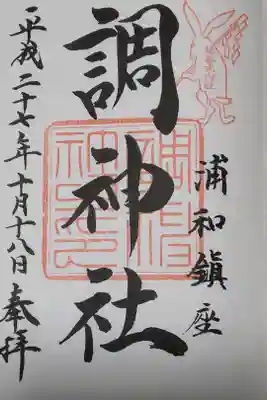 浦和鎮座
調神社
平成二十七年十月十八日奉拝